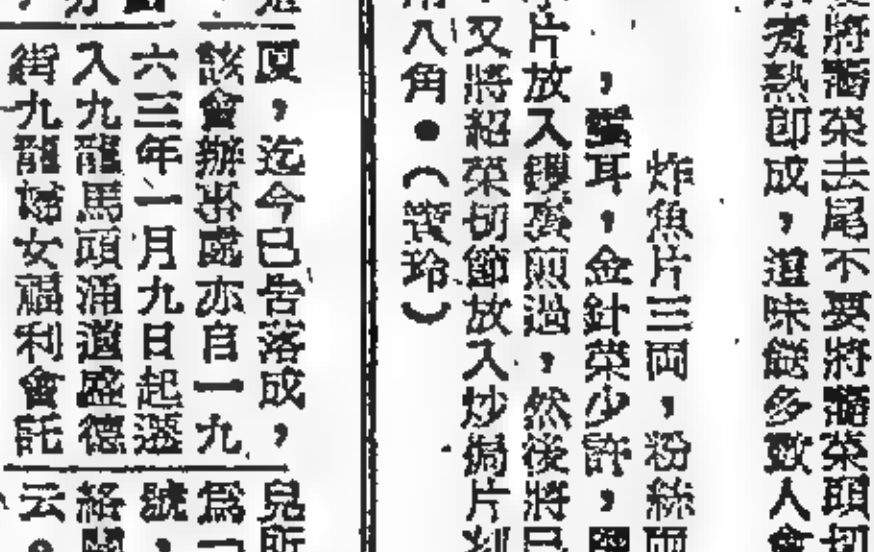 將菜去尾不要將菜頭切
煮熟即成，這味餸多數人會
炸魚片三両，粉絲両
，耳，金針菜少許，
片放入鑊裏煎過，然後將已
又將紹菜切節放入炒焗片刻
八角●（寶玲）
廈，迄今已告落成，
該會辦事處亦自一九
六三年一月九日起遷
入九龍馬頭涌道盛德
街九龍婦女福利會託
兒所
為
號，
紹
云。